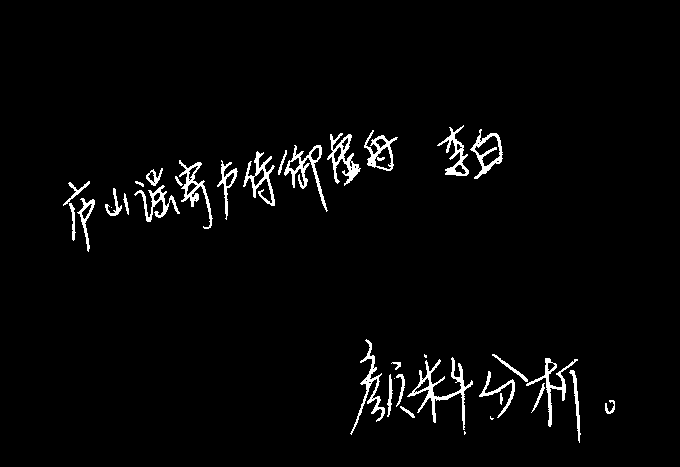 庐山谣寄卢侍御虚舟 李白
颜料分析。